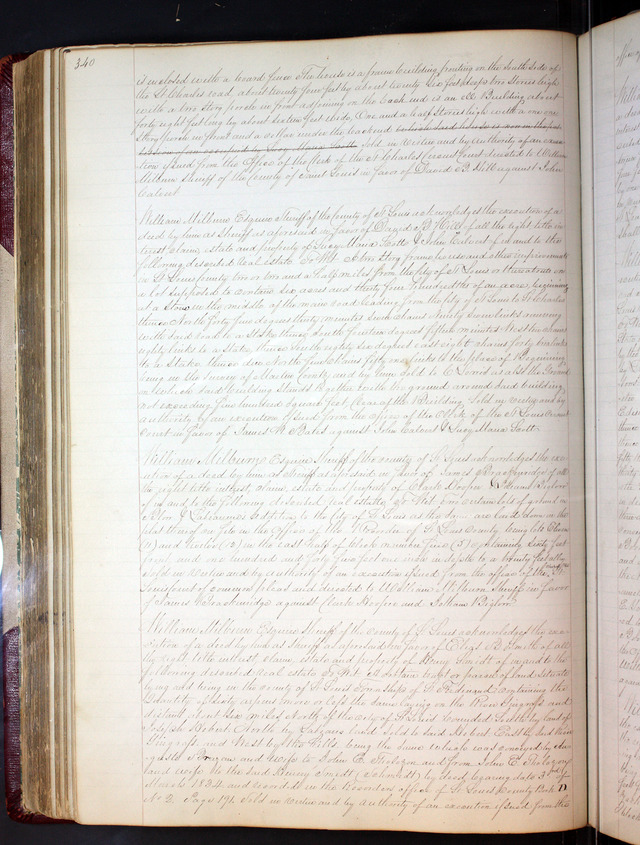 340
is inclosed with a board fence The house is a frame building fronting on the South Side of
the St Charles road about twenty four feet by about twenty six feet deep two Stories high
with a two Story porch in front adjoining on the back end is an Ell Building about
forty eight feet long by about sixteen feet wide, One and a half Stories high with a one
Story porch in front and a cellar under the back end
Sold in virtue and by authority of an execu
tion issued from the Office of the Clerk of the St Charles Circuit Court directed to William
Milburn Sheriff of the County of Saint Louis in favor of David B. Hill against John
Calvert
William Milburn Esquire Sheriff of the County of St Louis acknowledges the execution of a
deed by him as Sheriff as aforesaid in favor of David B Hill of all the right title in
terest claim, estate and property of Lucy Maria Scott & John Calvert of in and to the
following described Real Estate to Wit A two Story frame house and other improvements
in St Louis County two or two and a half miles from the City of St Louis or thereabouts on
a lot supposed to contain six acres and thirty four hundredths of an acre, beginning
at a Stone in the middle of the main road leading from the City of St Louis to St Charles
thence North forty four degrees thirty minutes West chains ninety seven links running
with said road to a Stake thence South fourteen degrees fifteen minutes West ten chains
eighty links to a Stake thence South eighty six degrees east eight chains forty two links
to a Stake thence due North four chains fifty six links to the place of Beginning
being in the Survey of Martin County and by him sold to C Lewis as also the Ground
on which said building Stands together with the ground around said building,
not exceeding five hundred Square feet, clear of the Building Sold in virtue and by
authority of an execution issued from the Office of the Clerk of the St Louis Circuit
Court in favor of James W. Bates against John Calvert & Lucy Maria Scott
William Milburn Esquire Sheriff of the County of St Louis acknowledges the exe
cution of a deed by him as Sheriff as aforesaid in favor of James Breckenridge of all
the right title interest claim, estate and property of Clark Hoxtoe & William Biglow
of in and to the following described real estate, to Wit two certain lots of ground in
addition to the City of St Louis as they are laid down on the
plat thereof on file in the Office of the Recorder of St Louis County being lots Eleven
(11) and twelve (12) in the East half of block number five (5) containing Sixty feet
front, and one hundred and forty five feet one inch in depth to a twenty feet alley
Sold in virtue and by authority of an execution issued from the office of the
Court of common pleas and directed to William Milburn Sheriff in favor
of James Breckenridge against Clark Hoxtoe and William Biglow
William Milburn Esquire Sheriff of the County of St Louis acknowledges the exe
cution of a deed by him as Sheriff as aforesaid in favor of Elias B Smith of all
the right title interest, claim, estate and property of Henry Smidt of in and to the
following described real estate to Wit A certain tract or parcel of land situate
lying and being in the county of St Louis Township of St Ferdinand containing the
quantity of Sixty arpens more or less the same laying on the River Gingrass and
distant about Six miles North of the city of St Louis bounded South by land of
Joseph Hebert North by Labeaume land sold to said Hebert East by land River
Gingrass and West by the Hills being the same which was conveyed by Au
gust and wife to John E. Tholozan and from John E. Tholozan
and wife to the said Henry Smidt (Schmidt) by deed bearing date 3rd of
March 1834 and recorded in the Recorders office of St Louis County Book D
No 2. Page 191. Sold in virtue and by Authority of an execution issued from the